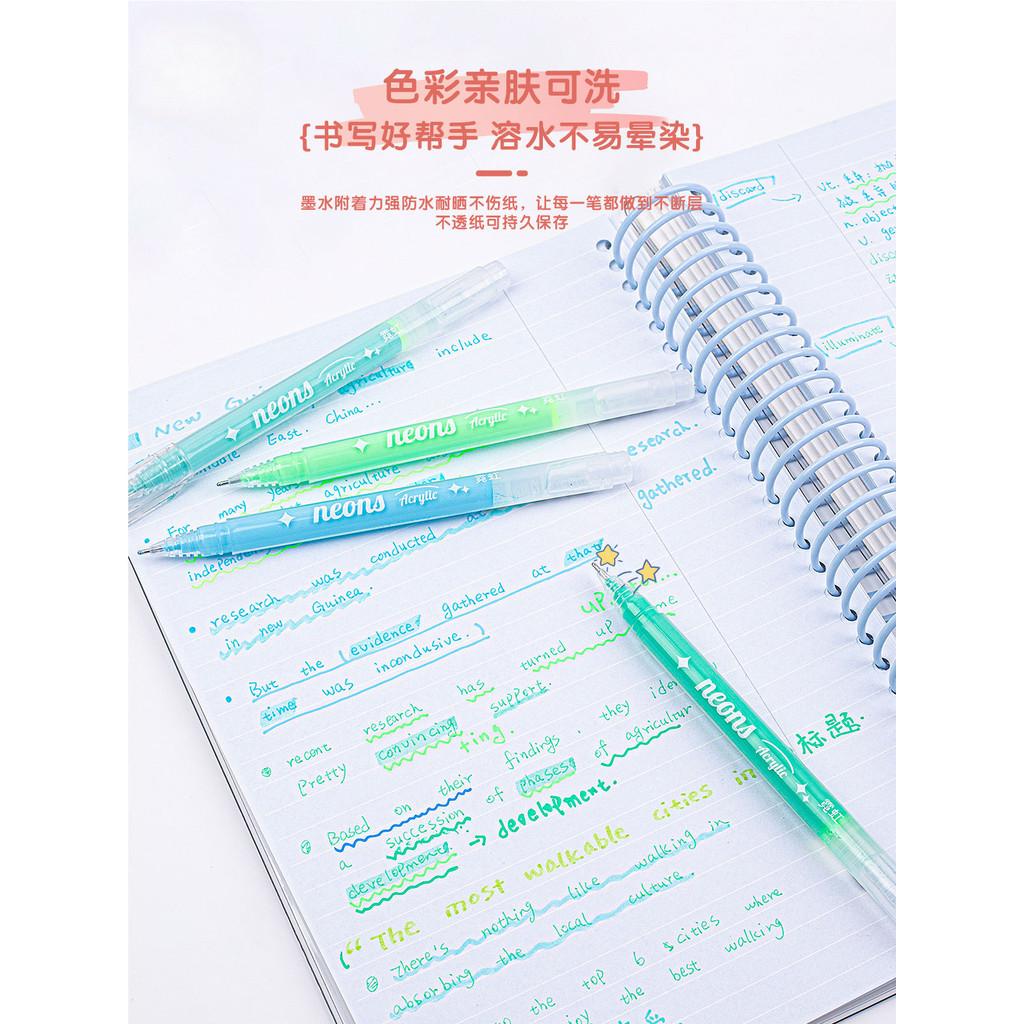 色彩亲肤可洗
{书写好帮手 溶水不易晕染}
墨水附着力强防水耐晒不伤纸，让每一笔都做到不断层
不透纸可持久保存
discard
n. object
illuminate
include
New
agriculture
East. China...
neons Acrylic 霓虹
neons Acrylic 霓虹
neons Acrylic 霓虹
research.
gathered.
For many years agriculture
research was conducted
in new Guinea.
But the (evidence gathered at that
time was inconclusive.)
up.
recent research has turned up
Pretty convincing support.
ting.
Based on their findings, they
a succession of phases of agricultur
development. → development.
neons Acrylic 霓虹
标题.
“The most walkable cities in
There's nothing like walking in
absorbing the local culture.
the top 6 s cities where
the best walking